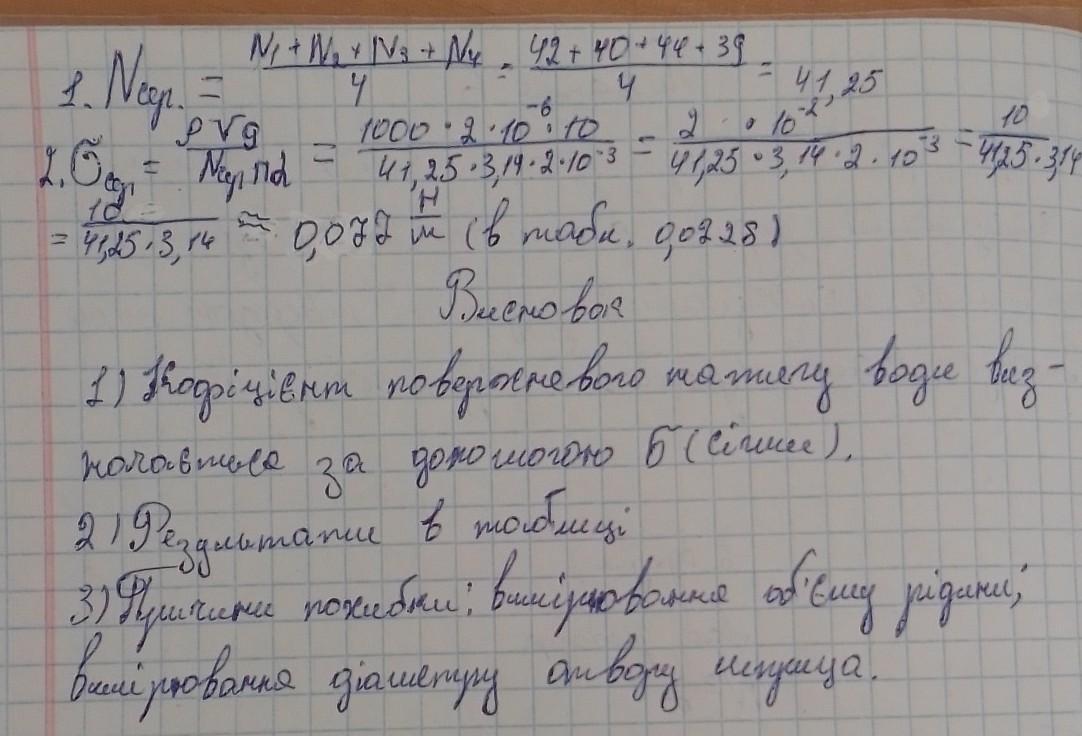 1. Nсер. = (N1 + N2 + N3 + N4)/4 = (42 + 40 + 44 + 39)/4 = 41,25
2. σсер = ρVg/(Nсер πd) = (1000 · 2 · 10^-6 · 10)/(41,25 · 3,14 · 2 · 10^-3) = (2 · 10^-2)/(41,25 · 3,14 · 2 · 10^-3) = 10/(41,25 · 3,14
= 10/(41,25 · 3,14) ≈ 0,077 Н/м (в табл. 0,0728)
Висновок
1) Коофіцієнт поверхневого натягу води виз-
начається за допомогою б (сігми).
2) Результати в таблиці
3) Причини похибки: вимірювання об'єму рідини;
вимірювання діаметру отвору шприца.